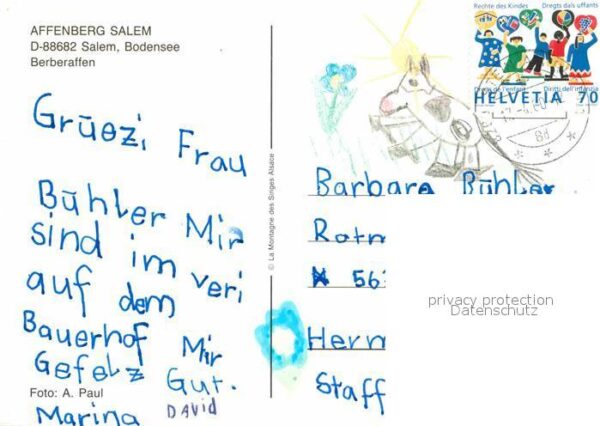 AFFENBERG SALEM
D-88682 Salem, Bodensee
Berberaffen
Grüezi Frau
Bühler Mir
sind im veri
auf dem
Bauerhof Mir
Gefelz Gut.
Foto: A. Paul
Marina DAVID
© La Montagne des Singes Alsace
Rechte des Kindes Dregts dals uffants
Droits de l'enfant Diritti dell'infanzia
HELVETIA 70
Barbara Bühler
Rotm
563
Herm
Staff
privacy protection
Datenschutz